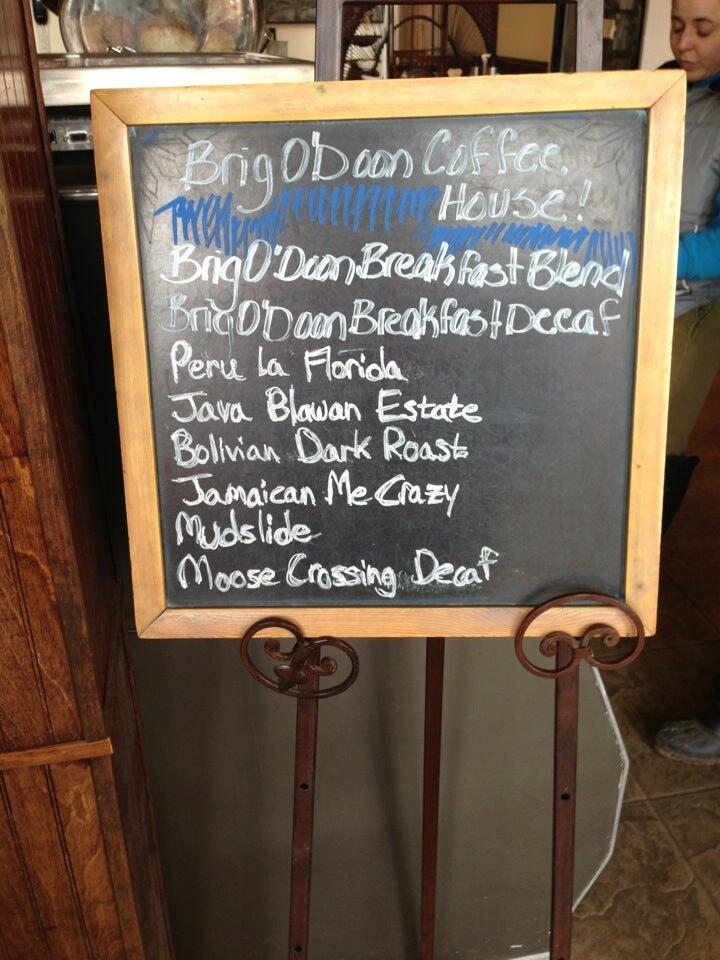 Brig O'Doon Coffee
House!
Brig O'Doon Breakfast Blend
Brig O'Doon Breakfast Decaf
Peru La Florida
Java Blawan Estate
Bolivian Dark Roast
Jamaican Me Crazy
Mudslide
Moose Crossing Decaf